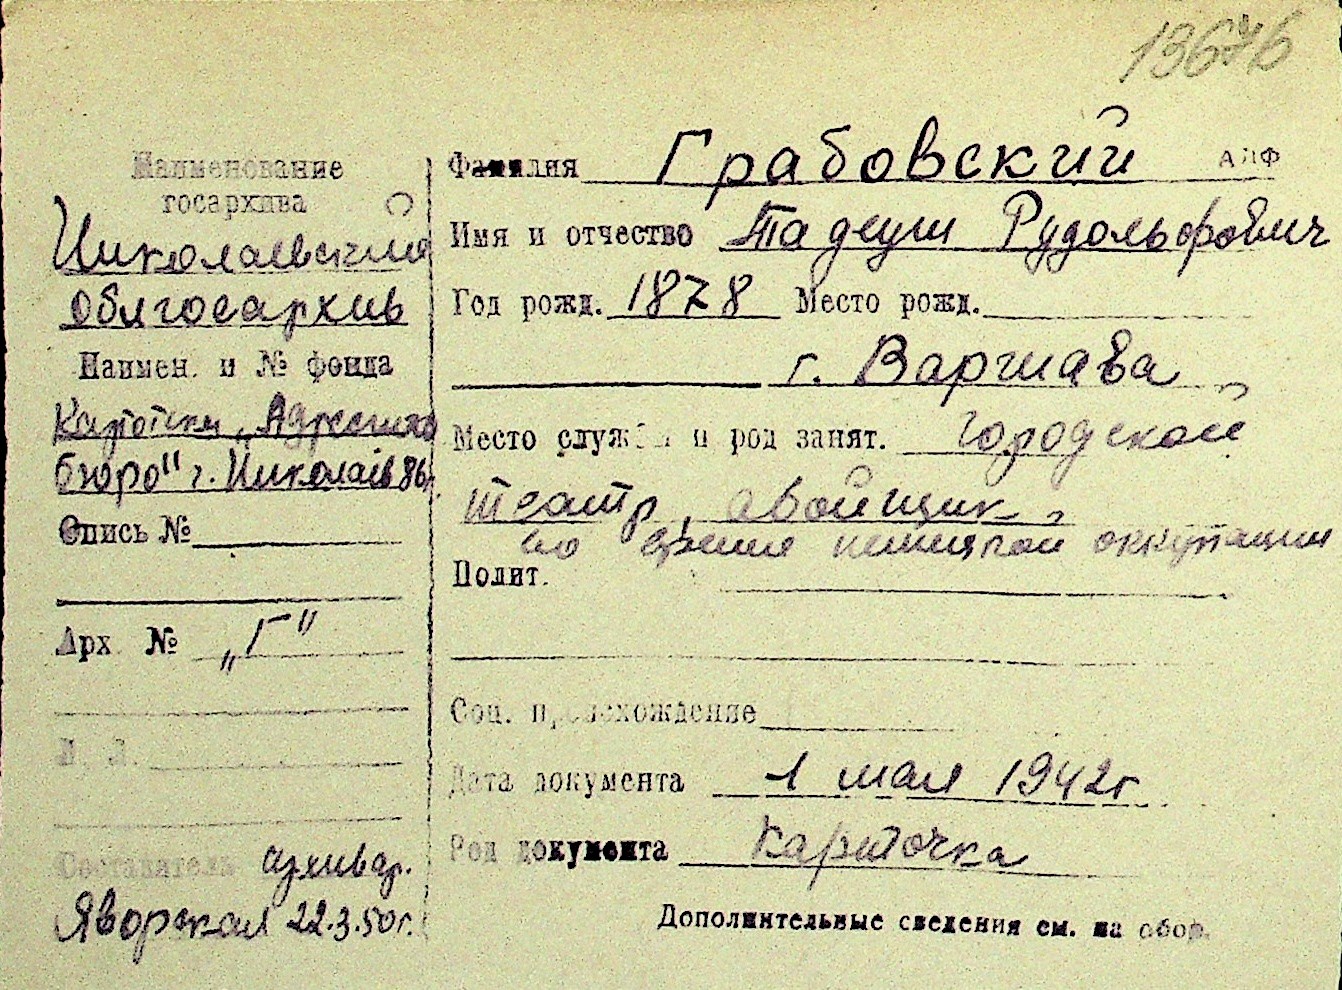 1367б
Наименование
госархива
Николаевский
Облгосархив
Наимен. и № фонда
Картотека "Адресного
бюро" г. Николаев
Опись №
Арх №
"Г"
Л. Л.
Составитель архивар.
Яворская 22.3.50г.
Фамилия Грабовский АЛФ
Имя и отчество Тадеуш Рудольфович
Год рожд. 1878 Место рожд.
г. Варшава
Место службы и род занят. городской
театр,
во время немецкой оккупации
Полит.
Соц. происхождение
Дата документа 1 мая 1942г
Род документа карточка
Дополнительные сведения см. на обор.